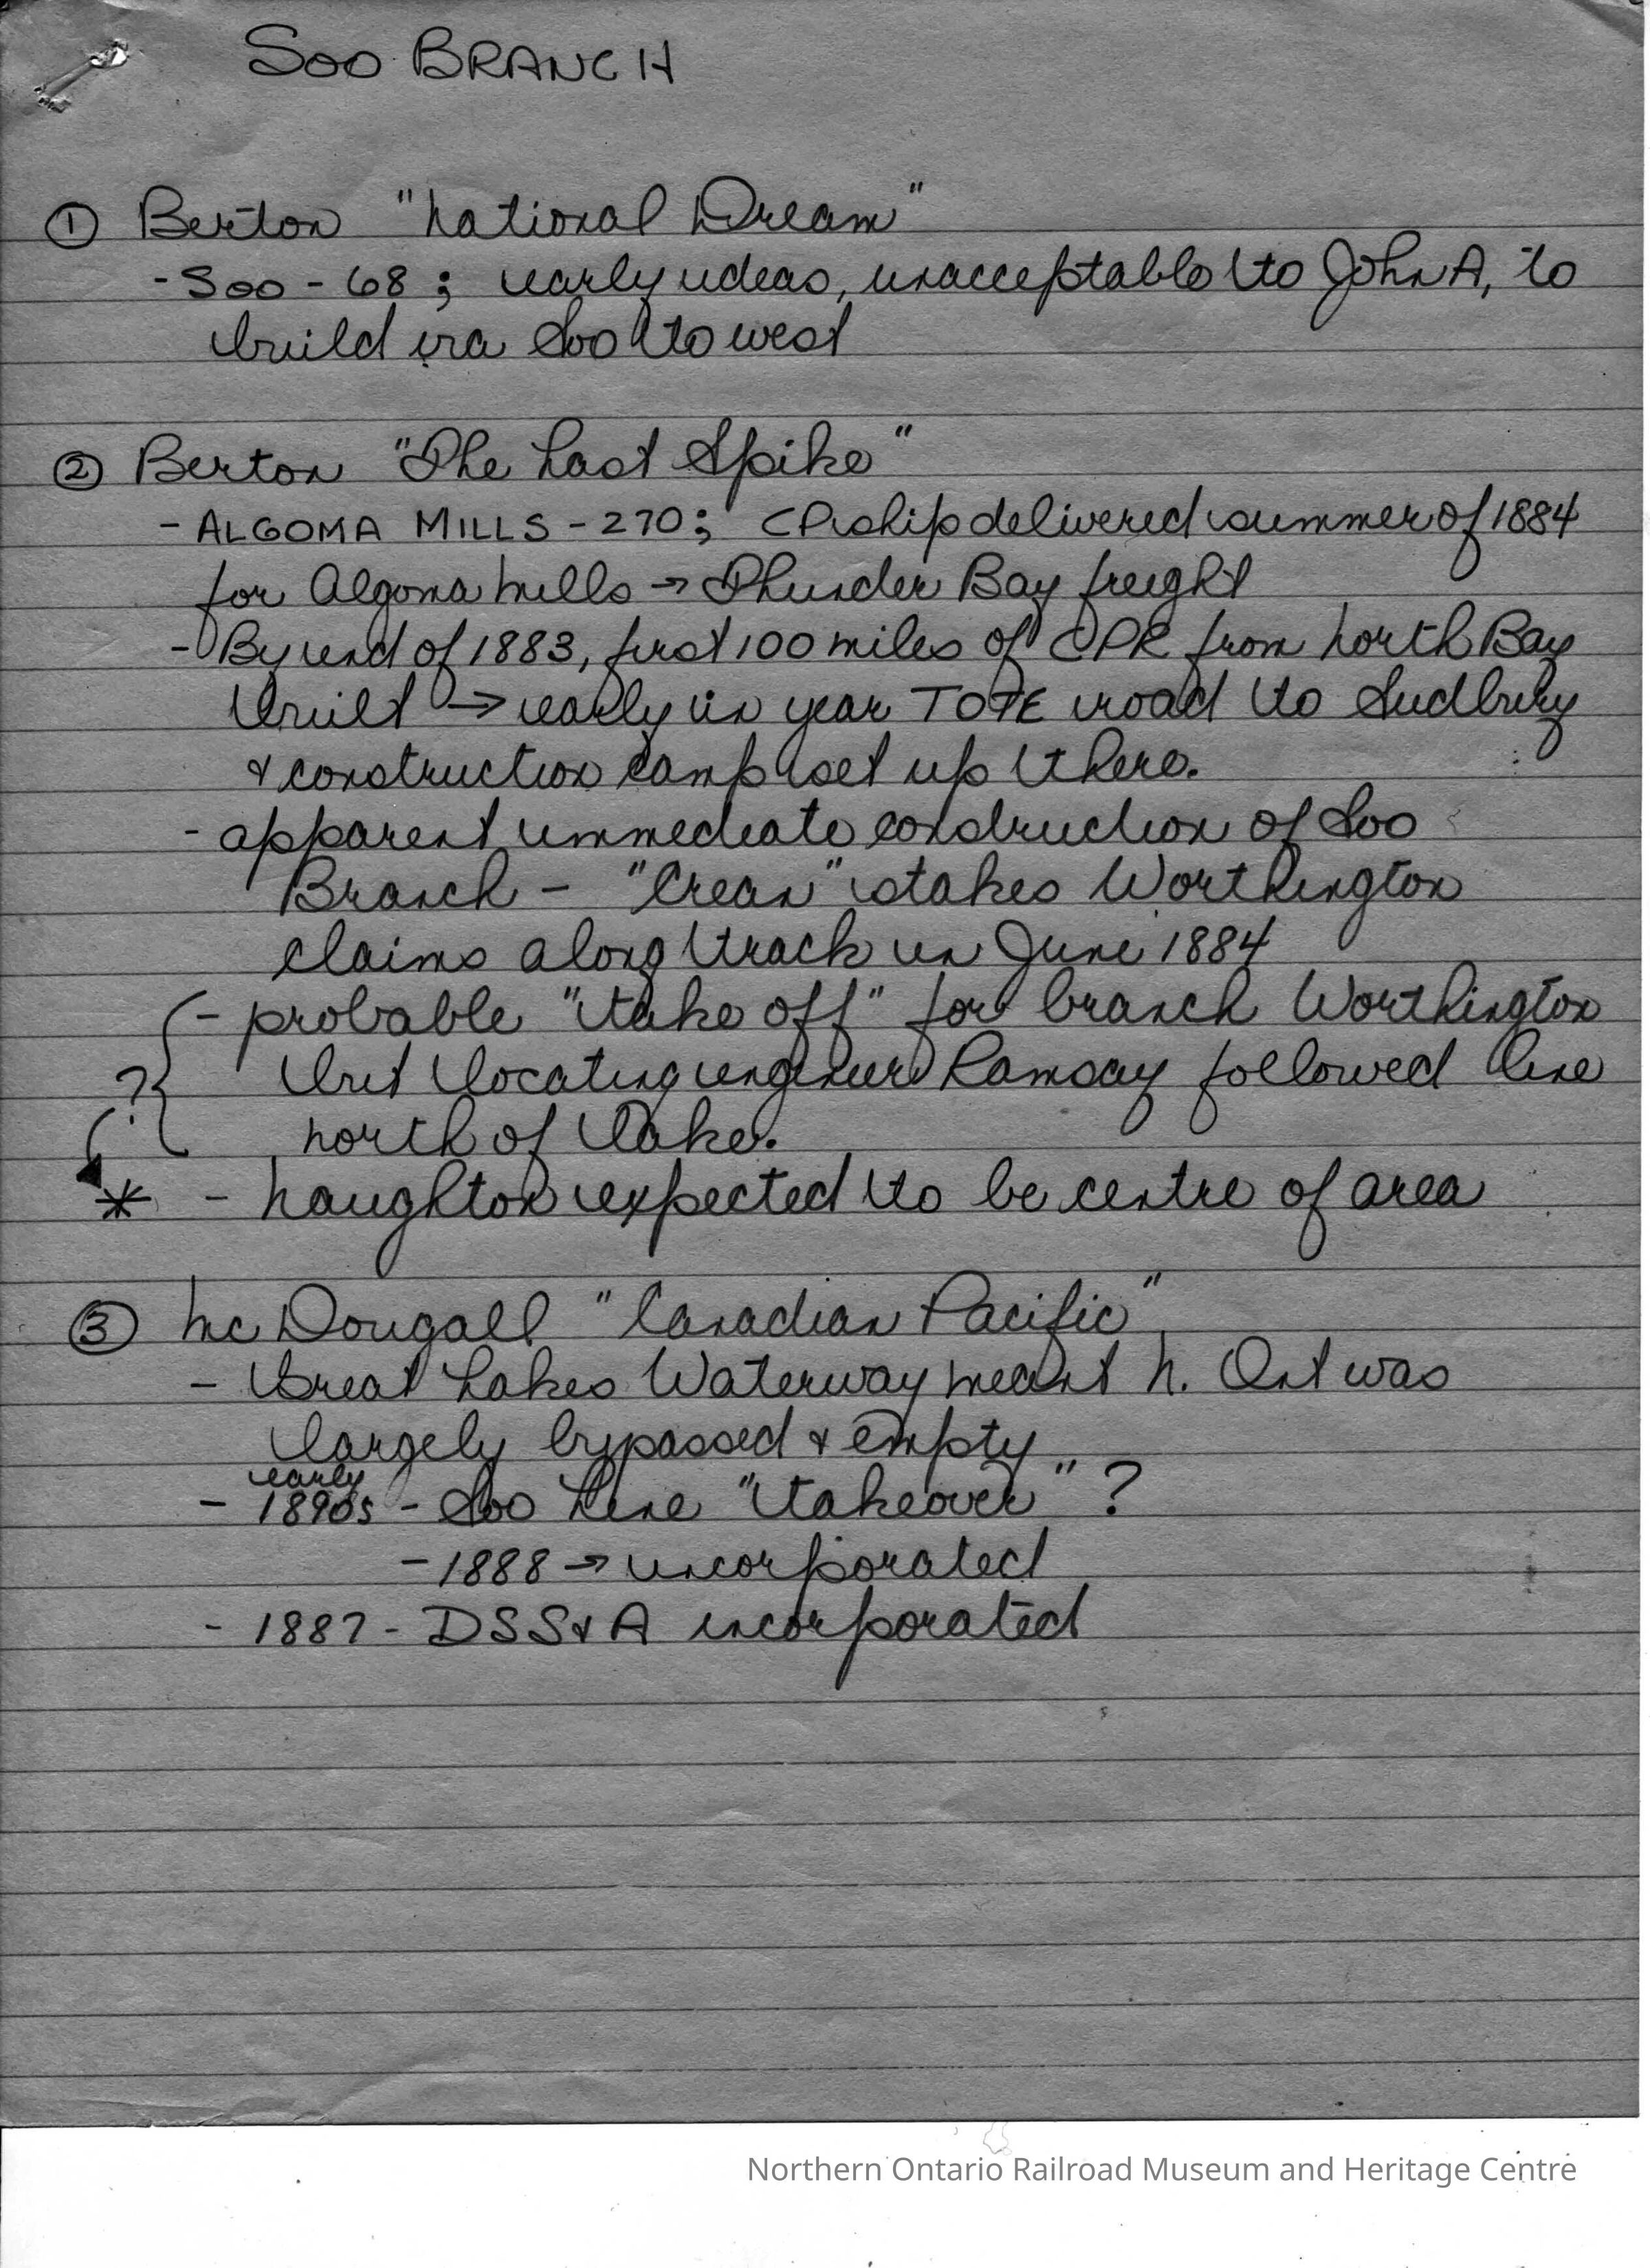 SOO BRANCH
① Berton "National Dream"
- Soo - 68; early ideas, unacceptable to John A, to
build via Soo to west
② Berton "The Last Spike"
- ALGOMA MILLS - 270; CP ship delivered summer of 1884
for Algoma Mills → Thunder Bay freight
- By end of 1883, first 100 miles of CPR from North Bay
built → early in year TOTE road to Sudbury
& construction camp set up there.
- apparent immediate construction of Soo
Branch - "Crean" stakes Worthington
claims along track in June 1884
- probable "take off" for branch Worthington
but locating engineer Ramsay followed line
?
north of lake.
* - Naughton expected to be centre of area
③ McDougall "Canadian Pacific"
- Great Lakes Waterway meant N. Ont was
largely bypassed & empty
early
- 1890s - Soo Line "takeover" ?
- 1888 → incorporated
- 1887 - DSS&A incorporated
Northern Ontario Railroad Museum and Heritage Centre